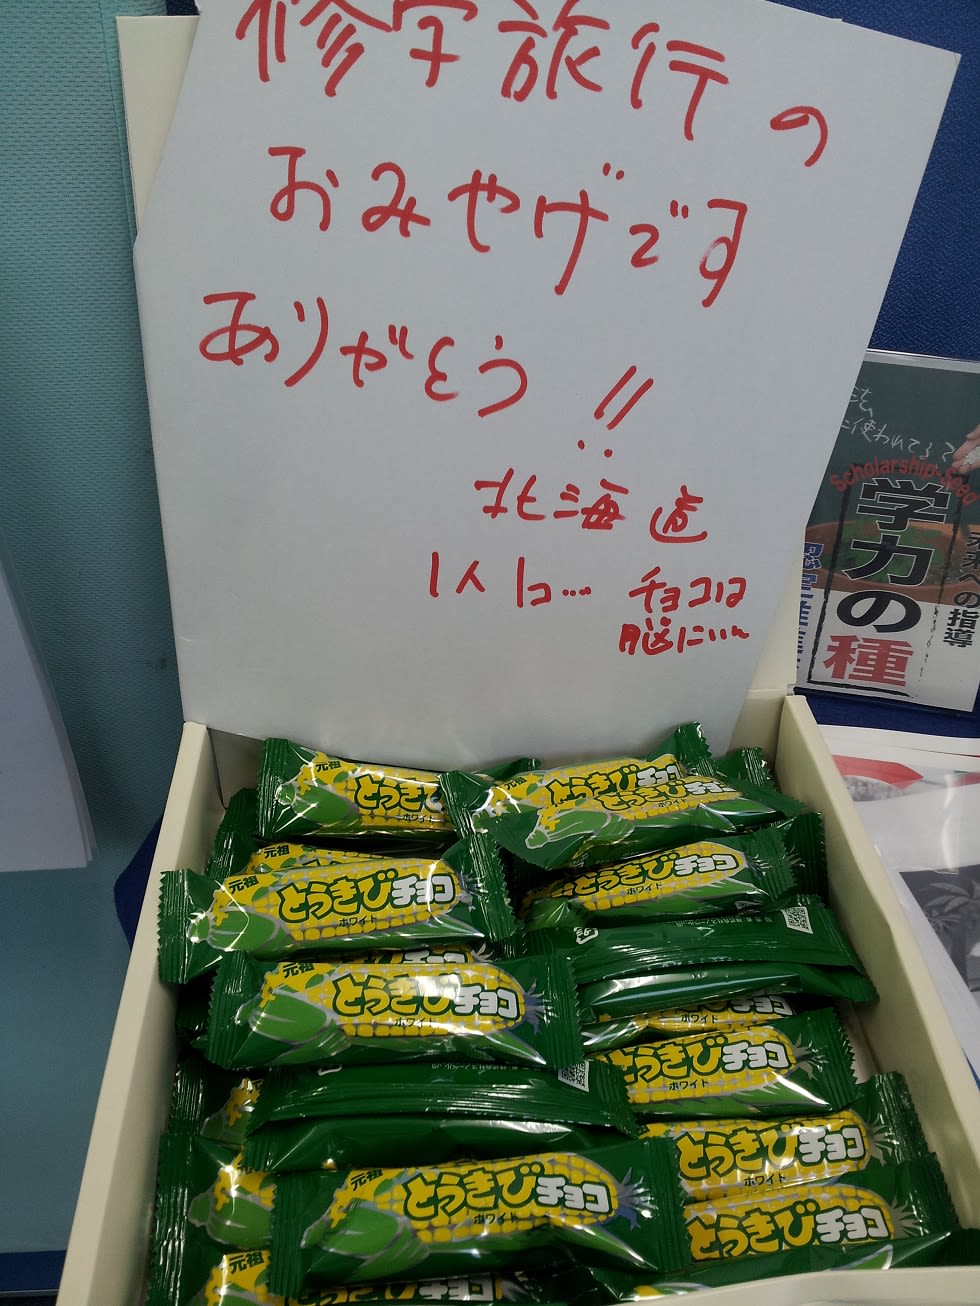 修学旅行の
おみやげです
ありがとう!!
北海道
1人1コ… チョコは
脳にいい
使われてる
Scholarship Seed
学力の種
未来への指導
元祖
とうきびチョコ
ホワイト
とうきびチョコ
ホワイト
元祖
とうきびチョコ
ホワイト
とうきびチョコ
ホワイト
元祖
とうきびチョコ
ホワイト
ホワイト
とうきびチョコ
ホワイト
とうきびチョコ
ホワイト
元祖
とうきびチョコ
ホワイト
とうきびチョコ
元祖